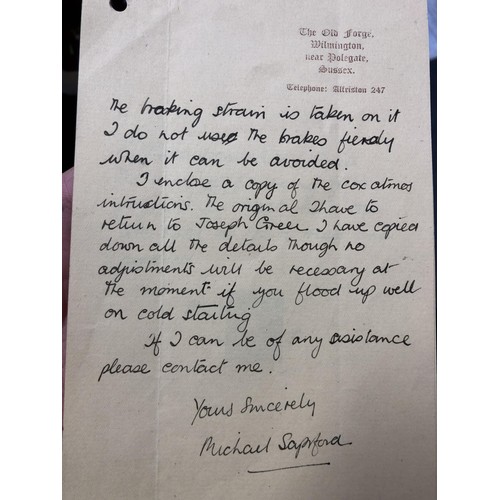 The Old Forge,
Wilmington,
near Polegate,
Sussex.
Telephone: Alfriston 247
The braking strain is taken on it
I do not use the brakes fiercly
when it can be avoided.
I enclose a copy of the cox atmos
intructions. The original I have to
return to Joseph Greer. I have copied
down all the details though no
adjistments will be necessary at
the moment if you flood up well
on cold starting
If I can be of any asistance
please contact me.
Yours Sincerely
Michael